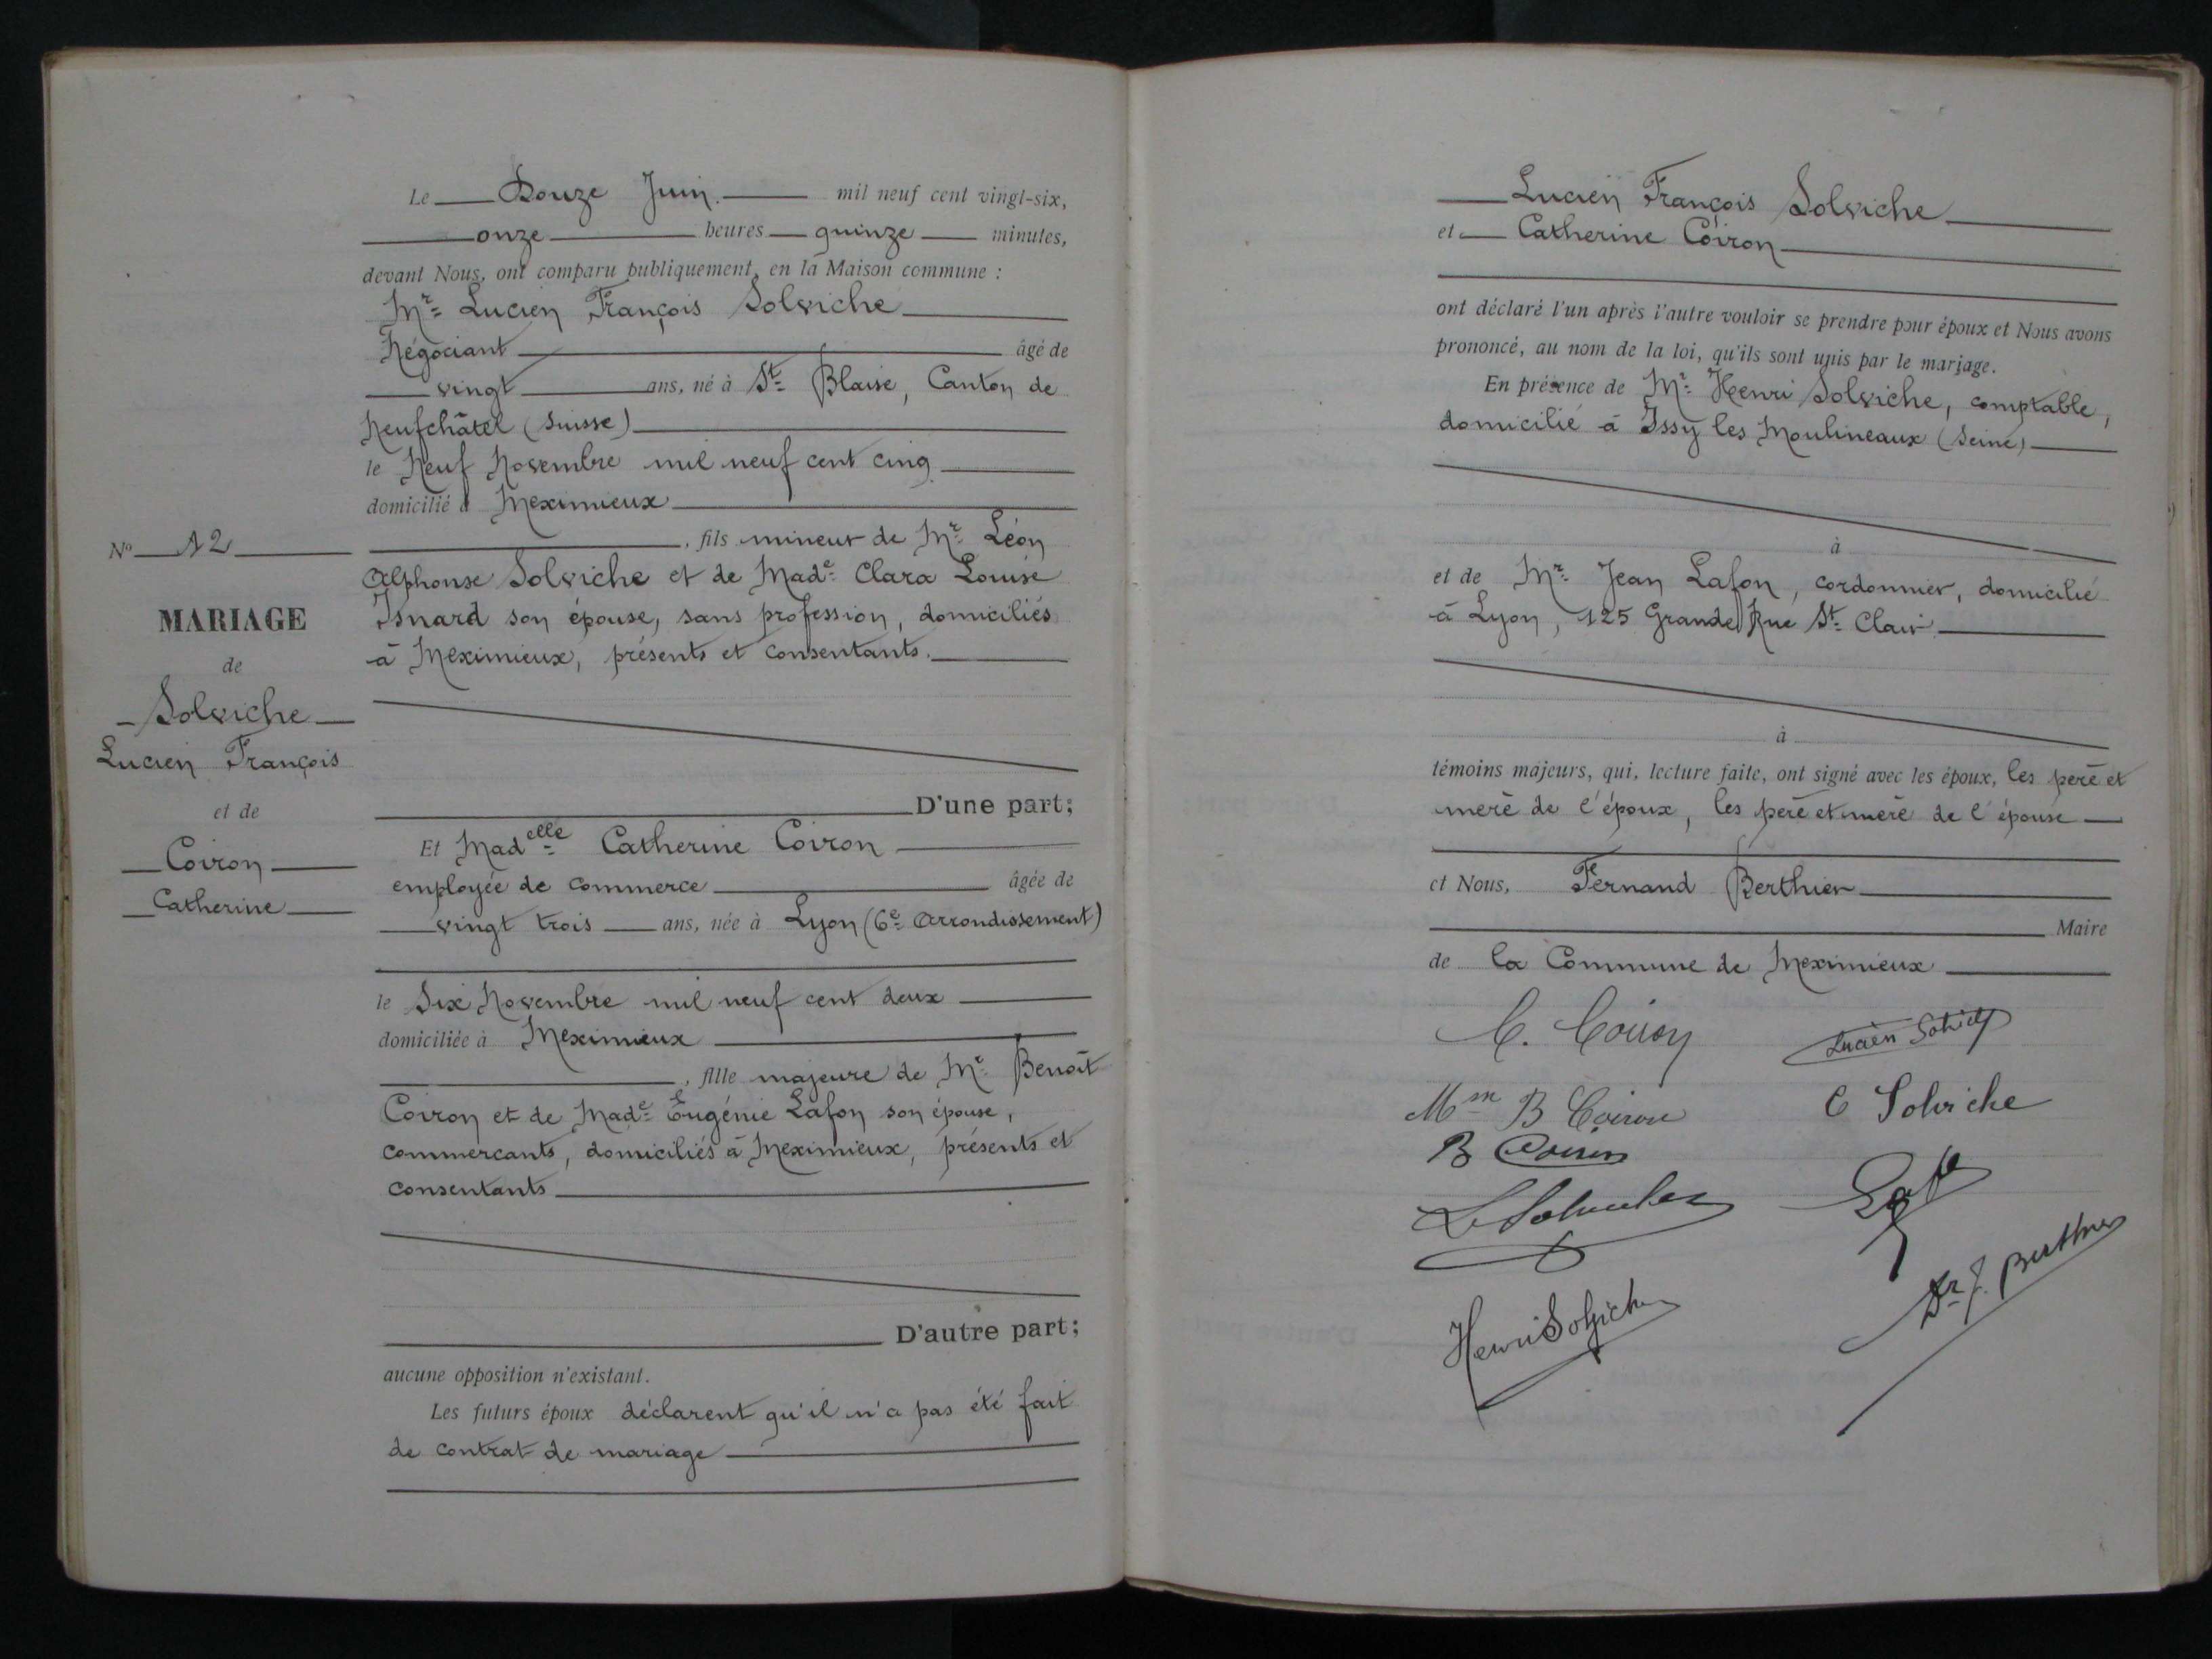 Le Douze Juin. mil neuf cent vingt-six,
onze heures quinze minutes,
devant Nous, ont comparu publiquement, en la Maison commune :
Mr Lucien François Solviche
Négociant âgé de
vingt ans, né à St Blaise, Canton de
Neufchâtel (Suisse)
le Neuf Novembre mil neuf cent cinq
domicilié à Meximieux
, fils mineur de Mr Léon
Alphonse Solviche et de Made Clara Louise
Isnard son épouse, sans profession, domiciliés
à Meximieux, présents et consentants.
No 12
MARIAGE
de
Solviche
Lucien François
et de
Coiron
Catherine
D'une part;
Et Madelle Catherine Coiron
employée de commerce âgée de
vingt trois ans, née à Lyon (6e Arrondissement)
le Six Novembre mil neuf cent deux
domiciliée à Meximieux
, fille majeure de Mr Benoît
Coiron et de Made Eugénie Lafon son épouse,
commercants, domiciliés à Meximieux, présents et
consentants
D'autre part;
aucune opposition n'existant.
Les futurs époux déclarent qu'il n'a pas été fait
de contrat de mariage
Lucien François Solviche
et Catherine Coiron
ont déclaré l'un après l'autre vouloir se prendre pour époux et Nous avons
prononcé, au nom de la loi, qu'ils sont unis par le mariage.
En présence de Mr Henri Solviche, comptable,
domicilié à Issy les Moulineaux (Seine)
à
et de Mr Jean Lafon, cordonnier, domicilié
à Lyon, 125 Grande Rue St Clair
à
témoins majeurs, qui, lecture faite, ont signé avec les époux, les père et
mère de l'époux, les père et mère de l'épouse
et Nous, Fernand Berthier
Maire
de la Commune de Meximieux
C. Coiron
Lucien Solviche
Mm B Coiron
C Solviche
B Coiron
L Solviche
Henri Solviche
Dr F. Berthier